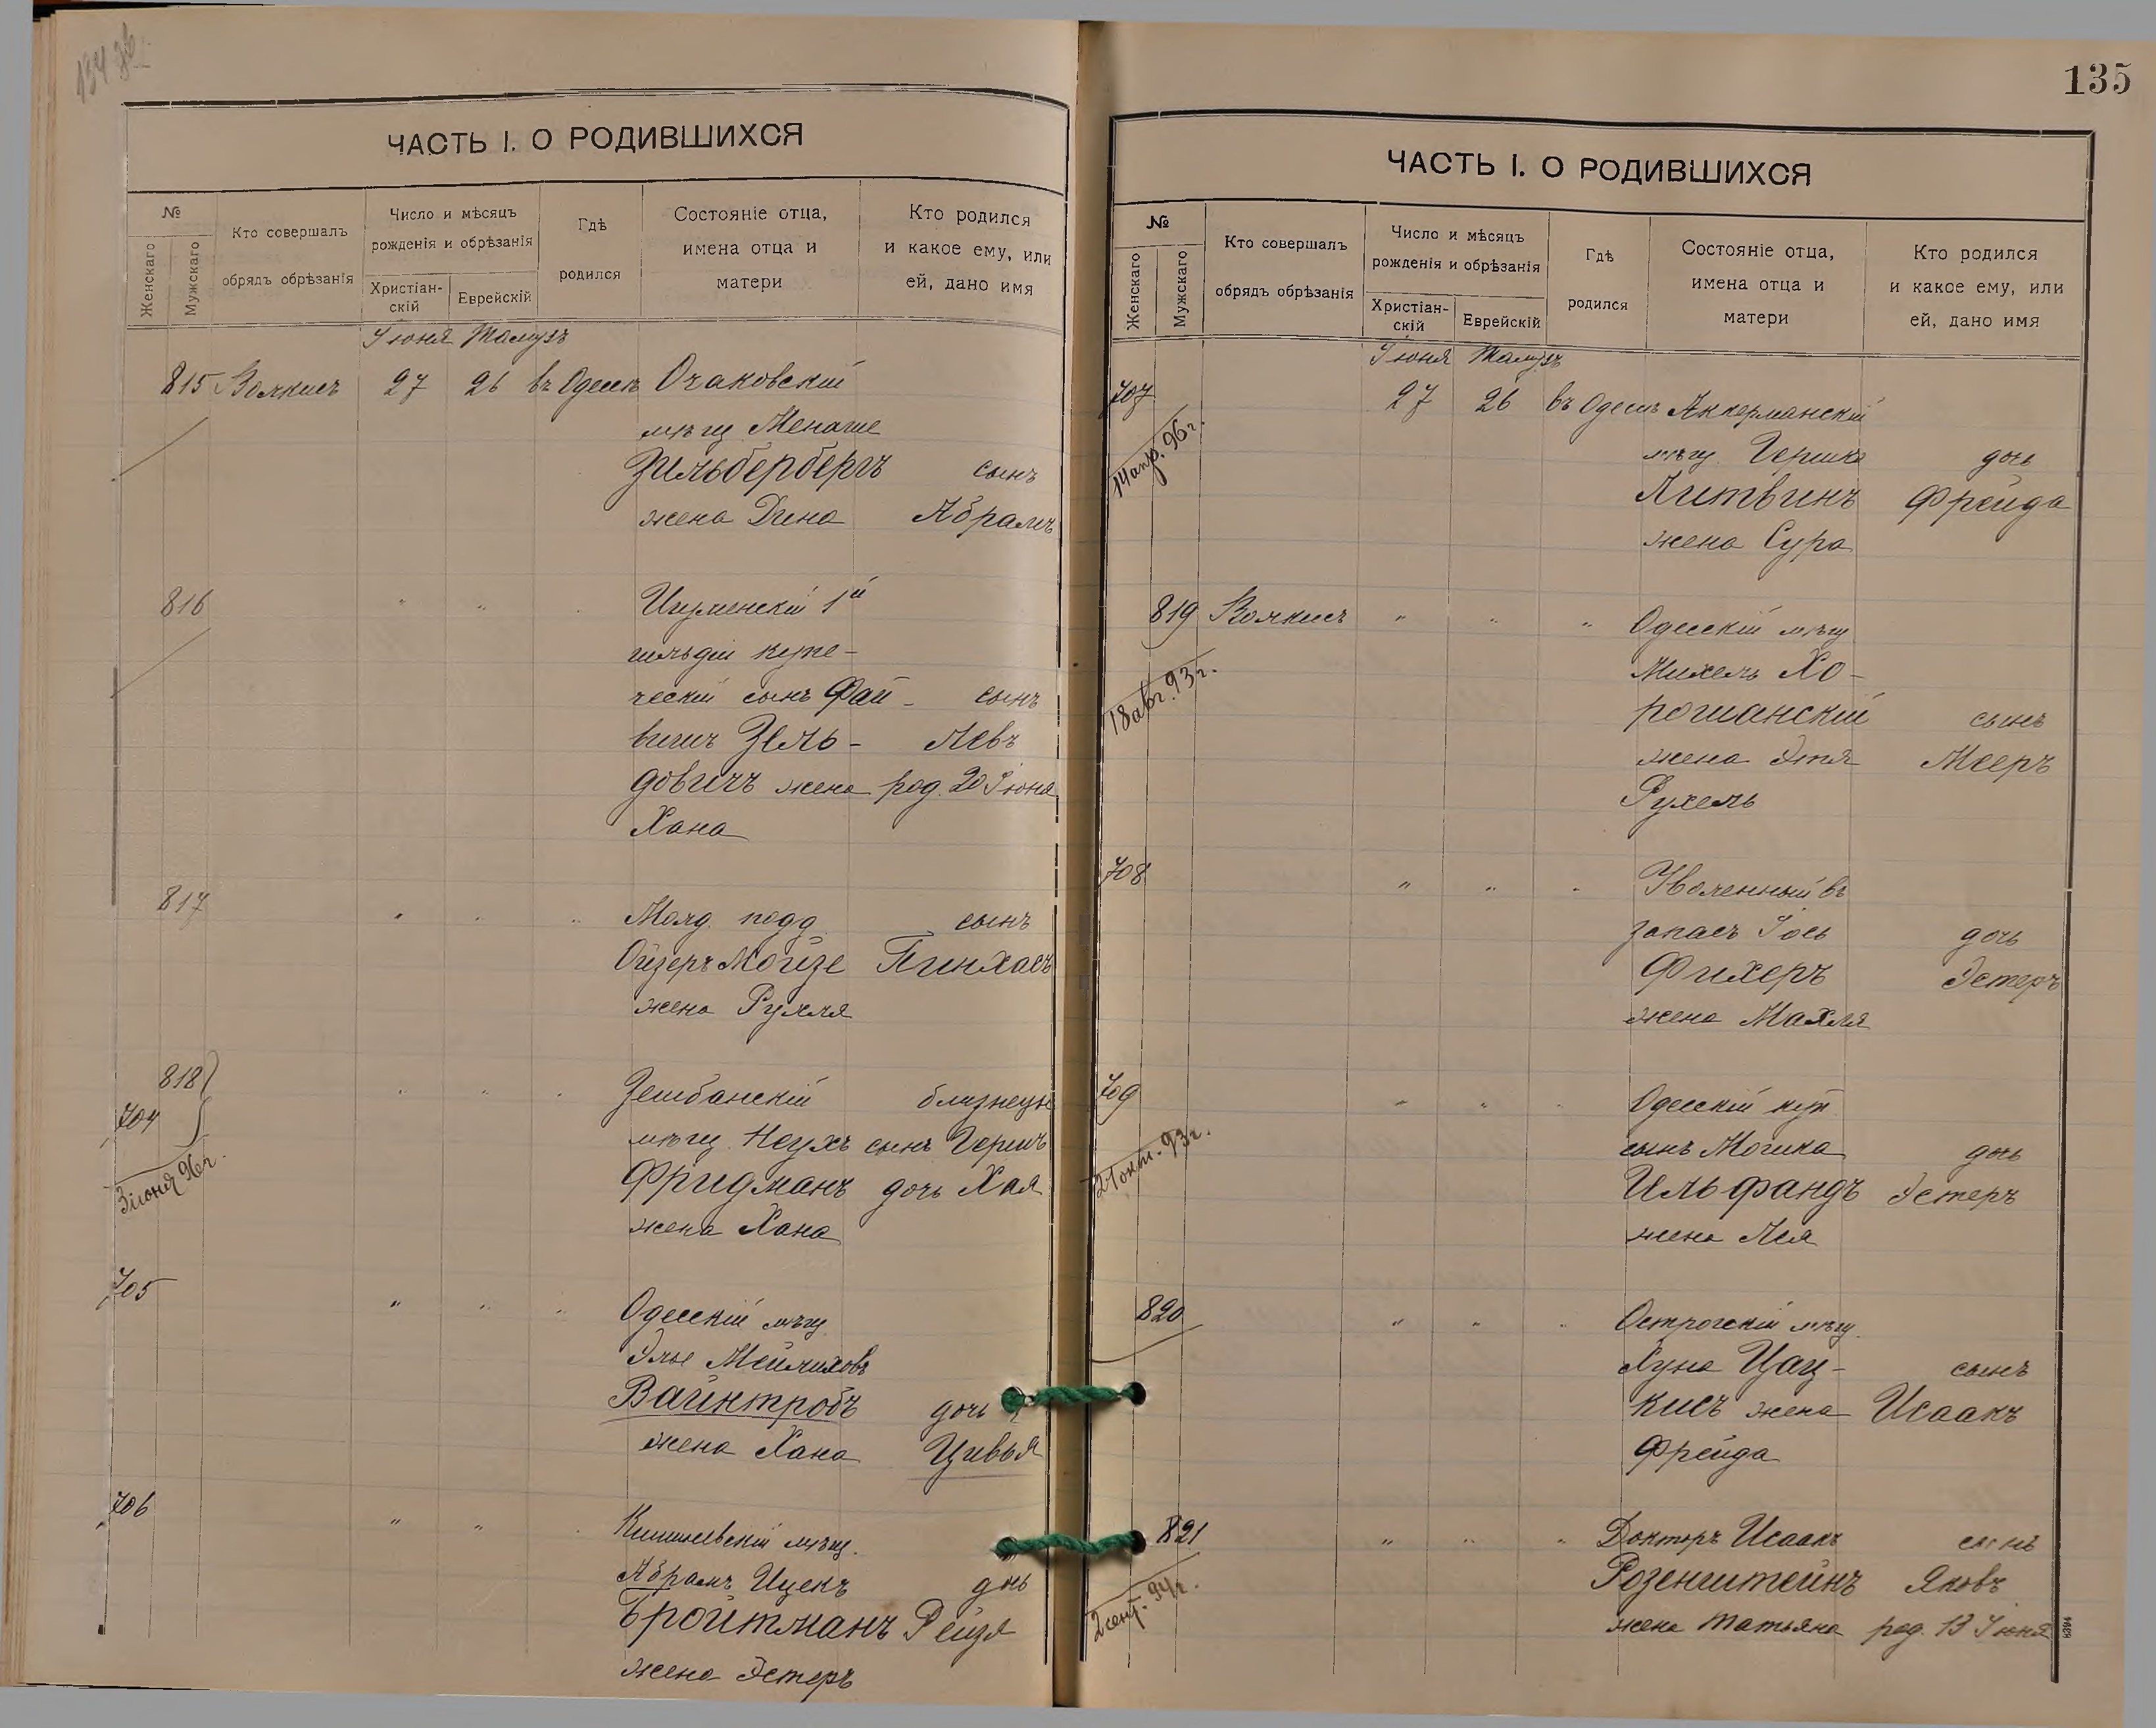 134 об.
ЧАСТЬ I. О РОДИВШИХСЯ
№
Женскаго
Мужскаго
Кто совершалъ
обрядъ обрѣзанія
Число и мѣсяцъ
рожденія и обрѣзанія
Христіан-
скій
Еврейскій
Гдѣ
родился
Состояніе отца,
имена отца и
матери
Кто родился
и какое ему, или
ей, дано имя
Іюня Тамузъ
815 27 26 въ Одессѣ Очаковскій
мѣщ. Менаше
Зильбербергъ сынъ
жена Дина Абрамъ
816 " " Игуменскій 1й
гильдіи купе-
ческій сынъ Фай- сынъ
вишъ Зель- Левъ
довичъ жена род. 20 Іюня
Хана
817 " " " Молд. подд. сынъ
Ойзеръ Мойзе Пинхасъ
жена Рухля
818 " " " близнецы
704 мѣщ. Неухъ сынъ Гершъ
3 іюня 96 г. Фридманъ дочь Хая
жена Хана
705 " " " Одесскій мѣщ.
Элье Мейлиховъ
Вайнтробъ дочь
жена Хана Цивья
706 " " Кишиневскій мѣщ.
Абрамъ Ицекъ дочь
Бройтманъ Рейзя
жена Эстеръ
135
ЧАСТЬ I. О РОДИВШИХСЯ
№
Женскаго
Мужскаго
Кто совершалъ
обрядъ обрѣзанія
Число и мѣсяцъ
рожденія и обрѣзанія
Христіан-
скій
Еврейскій
Гдѣ
родился
Состояніе отца,
имена отца и
матери
Кто родился
и какое ему, или
ей, дано имя
Іюня Тамузъ
707 27 26 въ Одессѣ Аккерманскій
14 апр. 96 г. мѣщ. Гершко дочь
Литвинъ Фрейда
жена Сура
819 " " " Одесскій мѣщ.
18 авг. 93 г. Михель Хо-
рошанскій сынъ
жена Этя Мееръ
Рухель
708 " " " Уволенный въ
запасъ Іось дочь
Фихеръ Эстеръ
жена Махля
709 " " " Одесскій куп.
21 окт. 93 г. сынъ Мошка дочь
Ильфандъ Эстеръ
жена Лея
820 " " " Острогскій мѣщ.
Хуна Цац- сынъ
кисъ жена Исаакъ
Фрейда
821 " " " Докторъ Исаакъ сынъ
2 сент. 94 г. Розенштейнъ Яковъ
жена Татьяна род. 13 Іюня